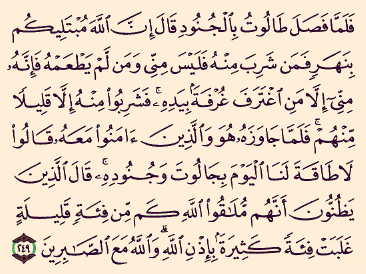 فَلَمَّا فَصَلَ طَالُوتُ بِالْجُنُودِ قَالَ إِنَّ اللَّهَ مُبْتَلِيكُم
بِنَهَرٍ فَمَن شَرِبَ مِنْهُ فَلَيْسَ مِنِّي وَمَن لَّمْ يَطْعَمْهُ فَإِنَّهُ
مِنِّي إِلَّا مَنِ اغْتَرَفَ غُرْفَةً بِيَدِهِ ۚ فَشَرِبُوا مِنْهُ إِلَّا قَلِيلًا
مِّنْهُمْ ۚ فَلَمَّا جَاوَزَهُ هُوَ وَالَّذِينَ ءَامَنُوا مَعَهُ قَالُوا
لَا طَاقَةَ لَنَا الْيَوْمَ بِجَالُوتَ وَجُنُودِهِ ۚ قَالَ الَّذِينَ
يَظُنُّونَ أَنَّهُم مُّلَٰقُوا اللَّهِ كَم مِّن فِئَةٍ قَلِيلَةٍ
غَلَبَتْ فِئَةً كَثِيرَةً بِإِذْنِ اللَّهِ ۗ وَاللَّهُ مَعَ الصَّٰبِرِينَ ٢٤٩